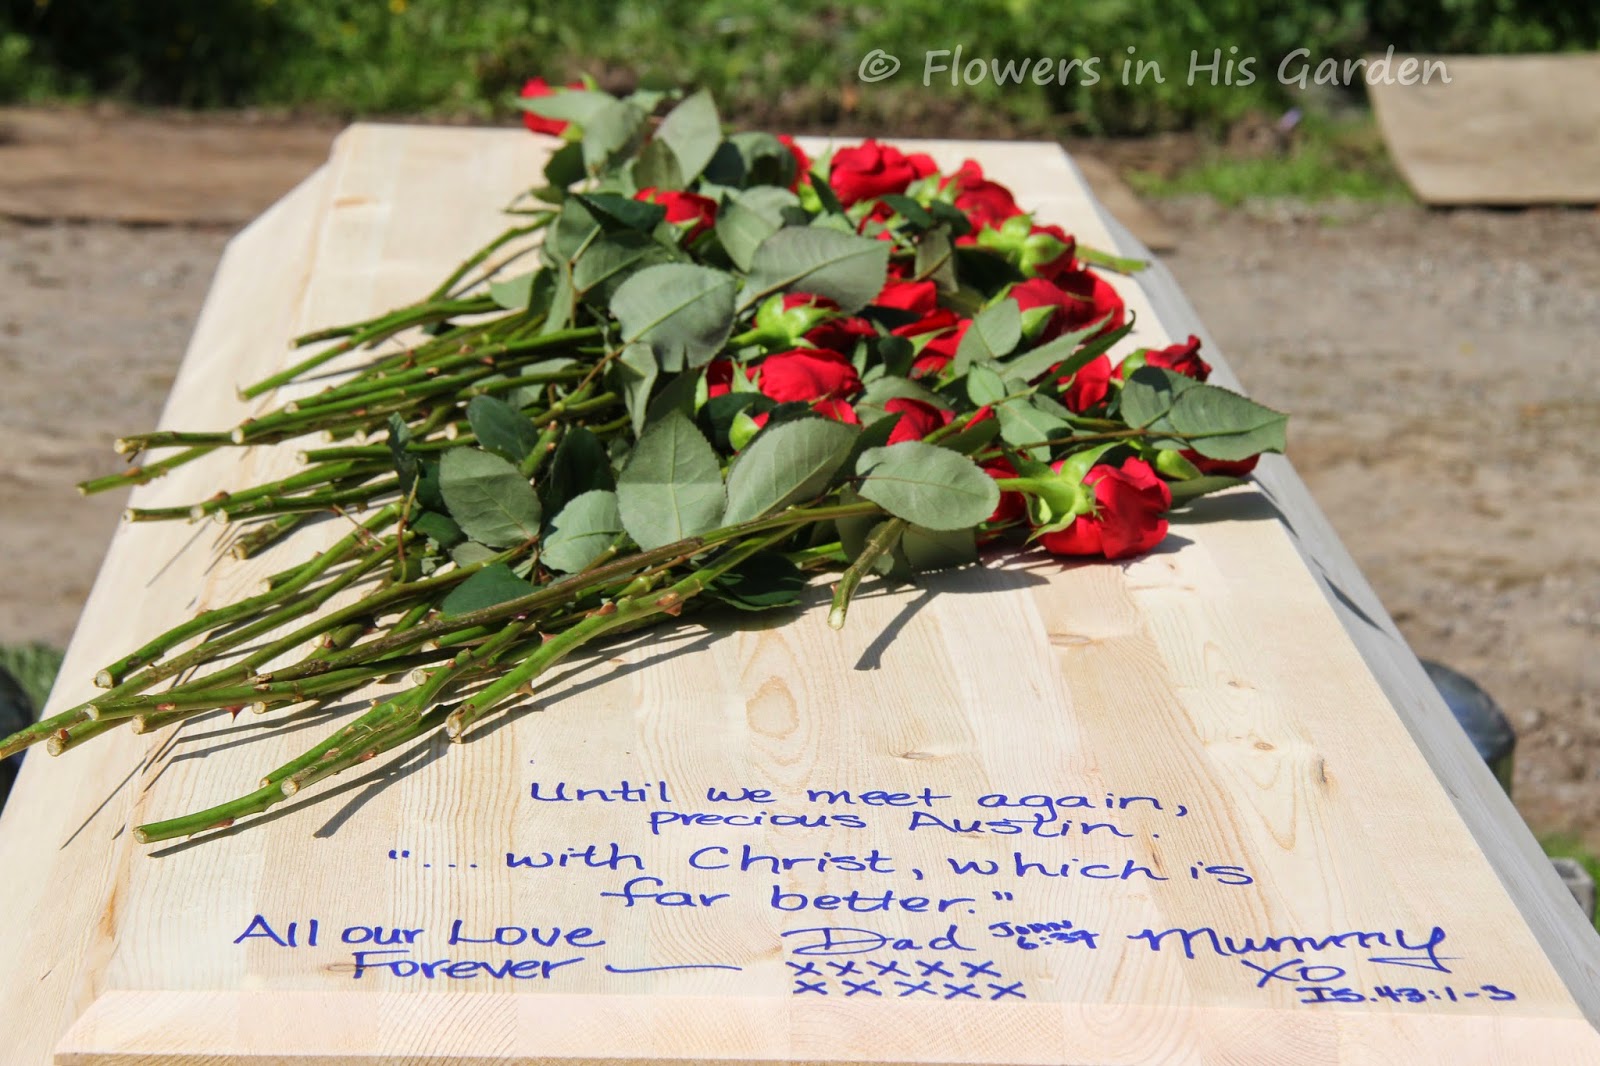 © Flowers in His Garden
Until we meet again,
precious Austin.
"... with Christ, which is
far better."
All our Love
Forever
Dad
John
6:37
xxxxx
xxxxx
Mummy
XO
Is. 43:1-3